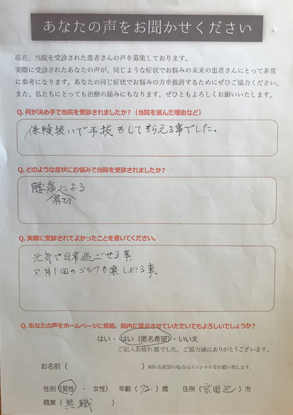 あなたの声をお聞かせください
現在、当院を受診された患者さんの声を募集しております。
実際に受診されたあなたの声が、同じような症状でお悩みの未来の患者さんにとって非常
に参考になります。あなたの同じ症状でお悩みの方を救済するためにぜひご協力ください。
また、私たちにとっても治療の励みにもなります。ぜひともよろしくお願いいたします。
Q. 何が決め手で当院を受診されましたか?(当院を選んだ理由など)
保険扱いで手技をしてもらえる事でした。
Q. どのような症状にお悩みで当院を受診されましたか?
腰痛による
Q. 実際に受診されてよかったことを書いてください。
元気で日常過ごせる事
又月1回のゴルフも楽しめる事。
Q. あなたの声をホームページに掲載、院内に提示させていただいてもよろしいでしょうか?
はい・はい(匿名希望)・いいえ
ご記入お疲れ様でした。ご協力誠にありがとうございます。
お名前( )
性別(男性・女性) 年齢(72)歳 住所( )市
職業(無職)